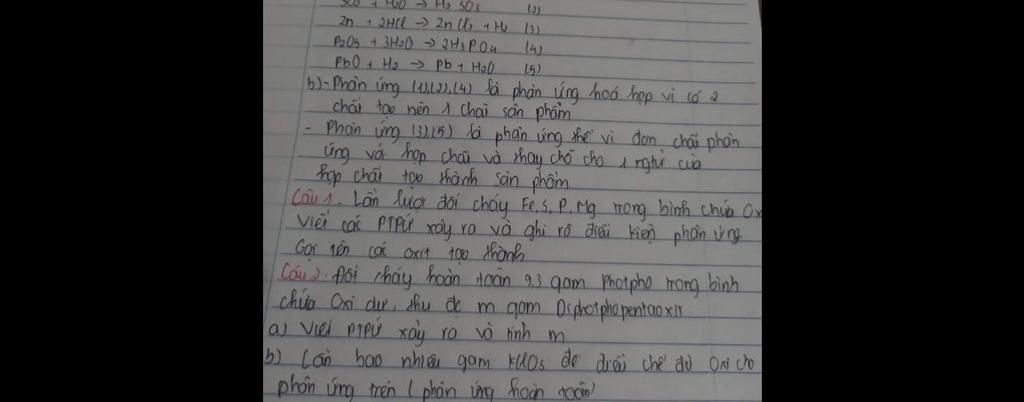 SO2 + H2O → H2SO3 (2)
Zn + 2HCl → ZnCl2 + H2 (3)
P2O5 + 3H2O → 2H3PO4 (4)
PbO + H2 → Pb + H2O (5)
b)- Phản ứng (1),(2),(4) là phản ứng hoá hợp vì có 2
chất tạo nên 1 chất sản phẩm
- Phản ứng (3),(5) là phản ứng thế vì đơn chất phản
ứng với hợp chất và thay chỗ cho 1 ngtử của
hợp chất tạo thành sản phẩm
Câu 1. Lần lượt đốt cháy Fe, S, P, Mg trong bình chứa Oxi
Viết các PTPỨ xảy ra và ghi rõ điều kiện phản ứng
Gọi tên các oxit tạo thành
Câu 2. Đốt cháy hoàn toàn 9,3 gam Photpho trong bình
chứa Oxi dư, thu đc m gam Điphotphopentaoxit
a) Viết PTPỨ xảy ra và tính m
b) Cần bao nhiêu gam KClO3 để điều chế đủ Oxi cho
phản ứng trên (phản ứng hoàn toàn)